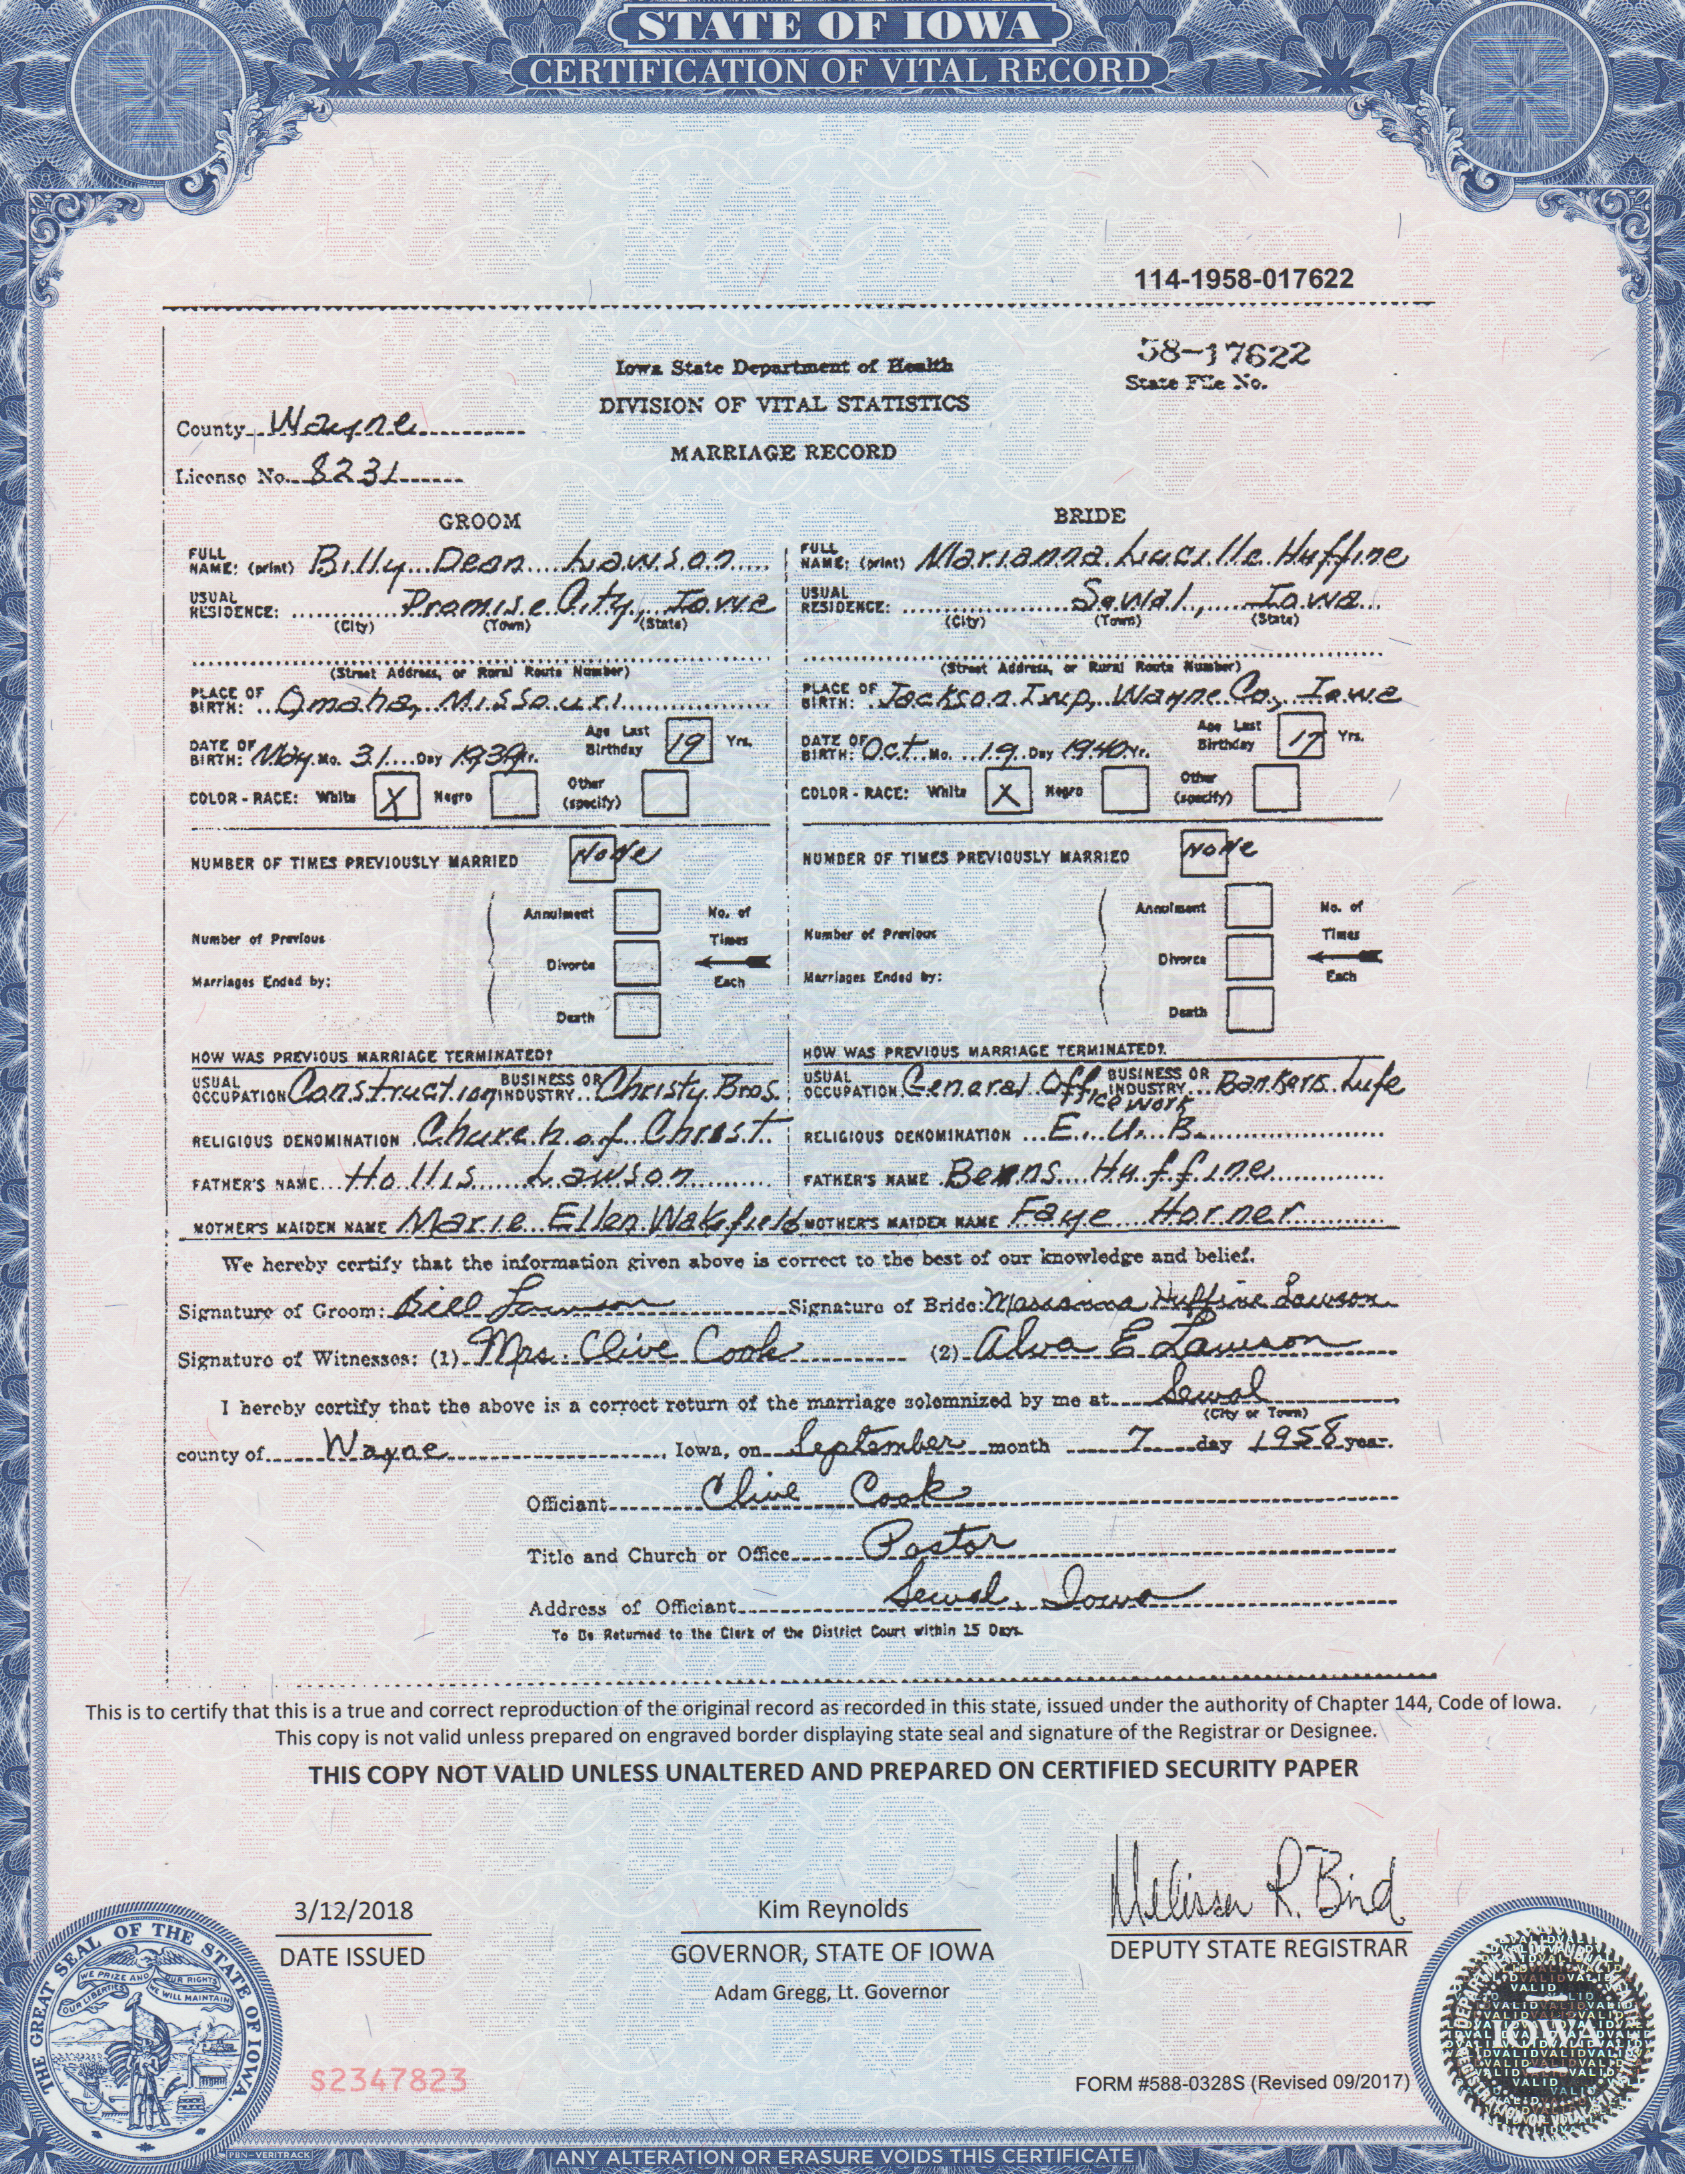 STATE OF IOWA
CERTIFICATION OF VITAL RECORD
114-1958-017622
58-17622
State File No.
Iowa State Department of Health
DIVISION OF VITAL STATISTICS
MARRIAGE RECORD
County Wayne
License No. 8231
GROOM
FULL NAME: (print) Billy Dean Lawson
USUAL RESIDENCE: Promise City, Iowa
(City) (Town) (State)
(Street Address, or Rural Route Number)
PLACE OF BIRTH: Omaha, Missouri
DATE OF BIRTH: May Mo. 31 Day 1939 Yr. Age Last Birthday 19 Yrs.
COLOR - RACE: White X Negro Other (specify)
NUMBER OF TIMES PREVIOUSLY MARRIED None
Number of Previous Marriages Ended by: Annulment Divorce Death No. of Times Each
HOW WAS PREVIOUS MARRIAGE TERMINATED?
USUAL OCCUPATION Construction BUSINESS OR INDUSTRY Christy Bros.
RELIGIOUS DENOMINATION Church of Christ
FATHER'S NAME Hollis Lawson
MOTHER'S MAIDEN NAME Marie Ellen Wakefield
BRIDE
FULL NAME: (print) Marianna Lucille Huffine
USUAL RESIDENCE: Sewal, Iowa
(City) (Town) (State)
(Street Address, or Rural Route Number)
PLACE OF BIRTH: Jackson Twp, Wayne Co, Iowa
DATE OF BIRTH: Oct Mo. 19 Day 1940 Yr. Age Last Birthday 17 Yrs.
COLOR - RACE: White X Negro Other (specify)
NUMBER OF TIMES PREVIOUSLY MARRIED None
Number of Previous Marriages Ended by: Annulment Divorce Death No. of Times Each
HOW WAS PREVIOUS MARRIAGE TERMINATED?
USUAL OCCUPATION General Office work BUSINESS OR INDUSTRY Bankers Life
RELIGIOUS DENOMINATION E. U. B.
FATHER'S NAME Huffine
MOTHER'S MAIDEN NAME Faye Horner
We hereby certify that the information given above is correct to the best of our knowledge and belief.
Signature of Groom: Bill Lawson Signature of Bride: Marianna Huffine Lawson
Signature of Witnesses: (1) Mrs. Clive Cook (2) Alva E Lawson
I hereby certify that the above is a correct return of the marriage solemnized by me at Sewal
(City or Town)
county of Wayne, Iowa, on September month 7 day 1958 year.
Officiant Clive Cook
Title and Church or Office Pastor
Address of Officiant Sewal, Iowa
To Be Returned to the Clerk of the District Court within 15 Days.
This is to certify that this is a true and correct reproduction of the original record as recorded in this state, issued under the authority of Chapter 144, Code of Iowa.
This copy is not valid unless prepared on engraved border displaying state seal and signature of the Registrar or Designee.
THIS COPY NOT VALID UNLESS UNALTERED AND PREPARED ON CERTIFIED SECURITY PAPER
3/12/2018
DATE ISSUED
Kim Reynolds
GOVERNOR, STATE OF IOWA
Adam Gregg, Lt. Governor
Melissa R. Bird
DEPUTY STATE REGISTRAR
THE GREAT SEAL OF THE STATE OF IOWA.
WE PRIZE AND OUR RIGHTS
OUR LIBERTIES WE WILL MAINTAIN
S2347823
FORM #588-0328S (Revised 09/2017)
IOWA
VALID
PBN-VERITRACK
ANY ALTERATION OR ERASURE VOIDS THIS CERTIFICATE